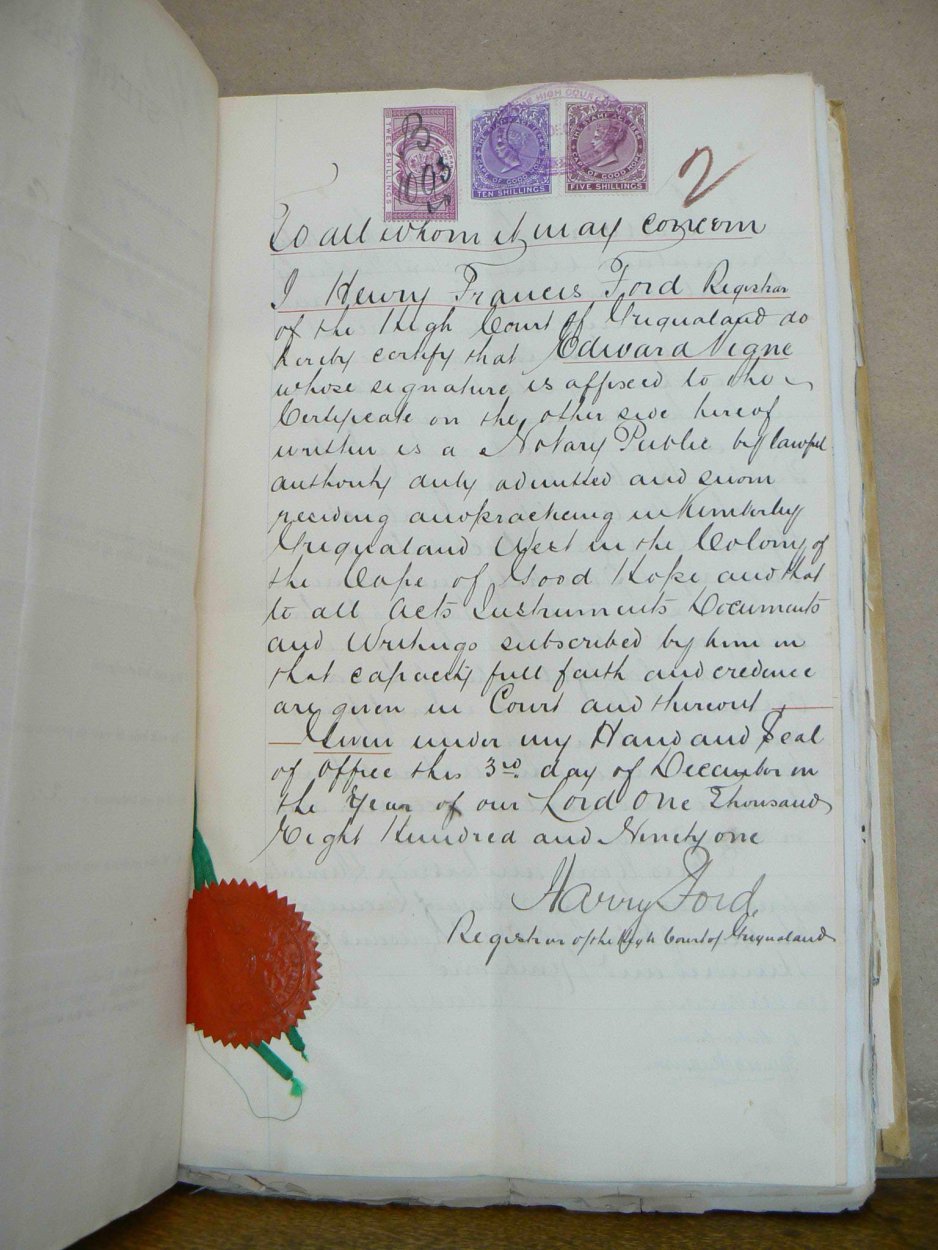 TWEE SHILLINGS
B
1003
THE HIGH COURT
THE STAMP ACT 1884
CAPE OF GOOD HOPE
TEN SHILLINGS
THE STAMP ACT 1884
CAPE OF GOOD HOPE
FIVE SHILLINGS
2
To all whom it may concern
I Henry Francis Ford Registrar
of the High Court of Griqualand do
hereby certify that Edward Vigne
whose signature is affixed to the
Certificate on the other side hereof
written is a Notary Public by lawful
authority duly admitted and sworn
residing and practicing in Kimberley
Griqualand West in the Colony of
the Cape of Good Hope and that
to all Acts Instruments Documents
and Writings subscribed by him in
that capacity full faith and credence
are given in Court and thereout
Given under my Hand and Seal
of office this 3rd day of December in
the Year of our Lord One Thousand
Eight Hundred and Ninety one
Harry Ford.
Registrar of the High Court of Griqualand